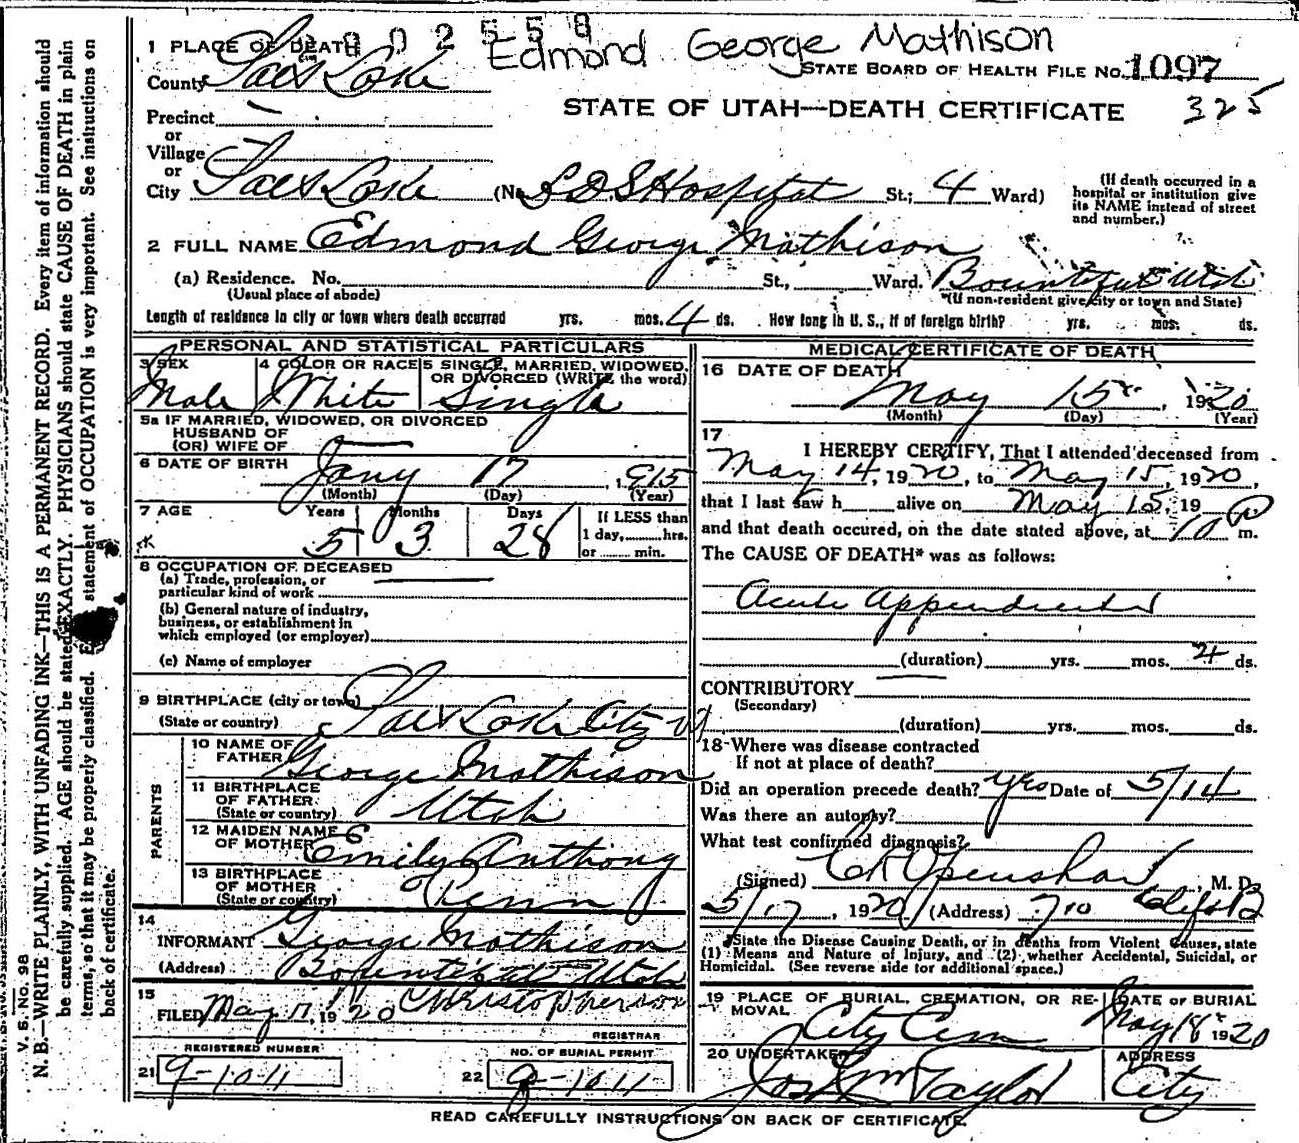 2002558
Edmond George Mathison
1 PLACE OF DEATH
STATE BOARD OF HEALTH FILE NO. 1097
County Salt Lake
325
STATE OF UTAH—DEATH CERTIFICATE
Precinct
or
Village
or
City Salt Lake (No. L D S Hospital St.; 4 Ward)
(If death occurred in a hospital or institution give its NAME instead of street and number.)
2 FULL NAME Edmond George Mathison
(a) Residence. No. St., Ward. Bountiful Utah
(Usual place of abode) (If non-resident give city or town and State)
Length of residence in city or town where death occurred yrs. mos. 4 ds. How long in U. S., if of foreign birth? yrs. mos. ds.
PERSONAL AND STATISTICAL PARTICULARS
3 SEX Male
4 COLOR OR RACE White
5 SINGLE, MARRIED, WIDOWED, OR DIVORCED (WRITE the word) Single
5a IF MARRIED, WIDOWED, OR DIVORCED
HUSBAND OF
(OR) WIFE OF
6 DATE OF BIRTH Jany 17, 1915
(Month) (Day) (Year)
7 AGE Years Months Days
5 3 28
If LESS than
1 day, hrs.
or min.
8 OCCUPATION OF DECEASED
(a) Trade, profession, or
particular kind of work
(b) General nature of industry,
business, or establishment in
which employed (or employer)
(c) Name of employer
9 BIRTHPLACE (city or town)
(State or country) Salt Lake City U
PARENTS
10 NAME OF
FATHER George Mathison
11 BIRTHPLACE
OF FATHER
(State or country) Utah
12 MAIDEN NAME
OF MOTHER Emily Anthony
13 BIRTHPLACE
OF MOTHER
(State or country) Penn
14
INFORMANT George Mathison
(Address) Bountiful Utah
15
FILED May 17, 1920 Christopherson
REGISTRAR
REGISTERED NUMBER
21 9-1011
NO. OF BURIAL PERMIT
22 9-1011
MEDICAL CERTIFICATE OF DEATH
16 DATE OF DEATH
May 15, 1920
(Month) (Day) (Year)
17
I HEREBY CERTIFY, That I attended deceased from
May 14, 1920, to May 15, 1920,
that I last saw h alive on May 15, 19
and that death occured, on the date stated above, at 10 P m.
The CAUSE OF DEATH* was as follows:
Acute Appendicitis
(duration) yrs. mos. 4 ds.
CONTRIBUTORY
(Secondary)
(duration) yrs. mos. ds.
18 Where was disease contracted
If not at place of death?
Did an operation precede death? yes Date of 5/14
Was there an autopsy?
What test confirmed diagnosis?
(Signed) C R Openshaw, M. D.
5/17, 1920 (Address) 710 Clift B
*State the Disease Causing Death, or in deaths from Violent Causes, state
(1) Means and Nature of Injury, and (2) whether Accidental, Suicidal, or
Homicidal. (See reverse side for additional space.)
19 PLACE OF BURIAL, CREMATION, OR REMOVAL
City Cem
DATE OF BURIAL
May 18 1920
20 UNDERTAKER
Jos Wm Taylor
ADDRESS
City
READ CAREFULLY INSTRUCTIONS ON BACK OF CERTIFICATE.
V. S. No. 98
N. B.—WRITE PLAINLY, WITH UNFADING INK—THIS IS A PERMANENT RECORD. Every item of information should
be carefully supplied. AGE should be stated EXACTLY. PHYSICIANS should state CAUSE OF DEATH in plain
terms, so that it may be properly classified. statement of OCCUPATION is very important. See instructions on
back of certificate.